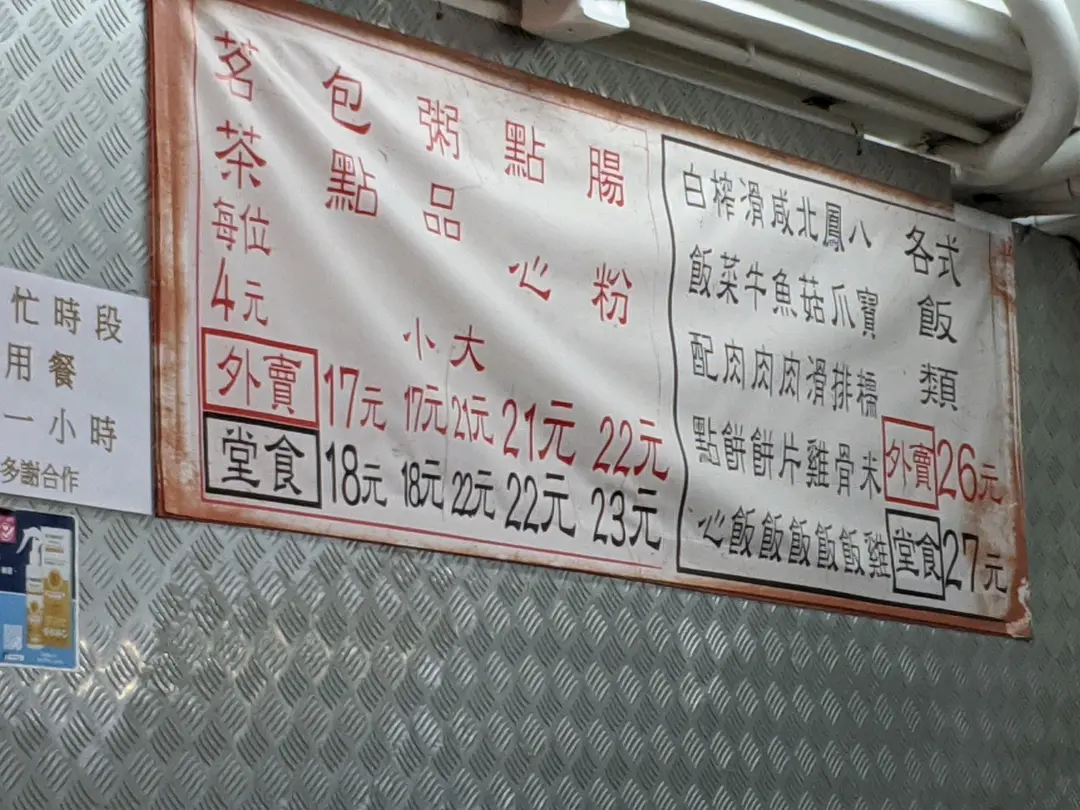 各式飯類
外賣26元
堂食27元
八寶糯米雞
鳳爪排骨飯
北菇滑雞飯
咸魚肉片飯
滑牛肉餅飯
榨菜肉餅飯
白飯配點心
腸粉
22元
23元
點心
21元
22元
粥品
大
21元
22元
小
17元
18元
包點
17元
18元
茗茶
每位
4元
外賣
堂食
忙時段
用餐
一小時
多謝合作